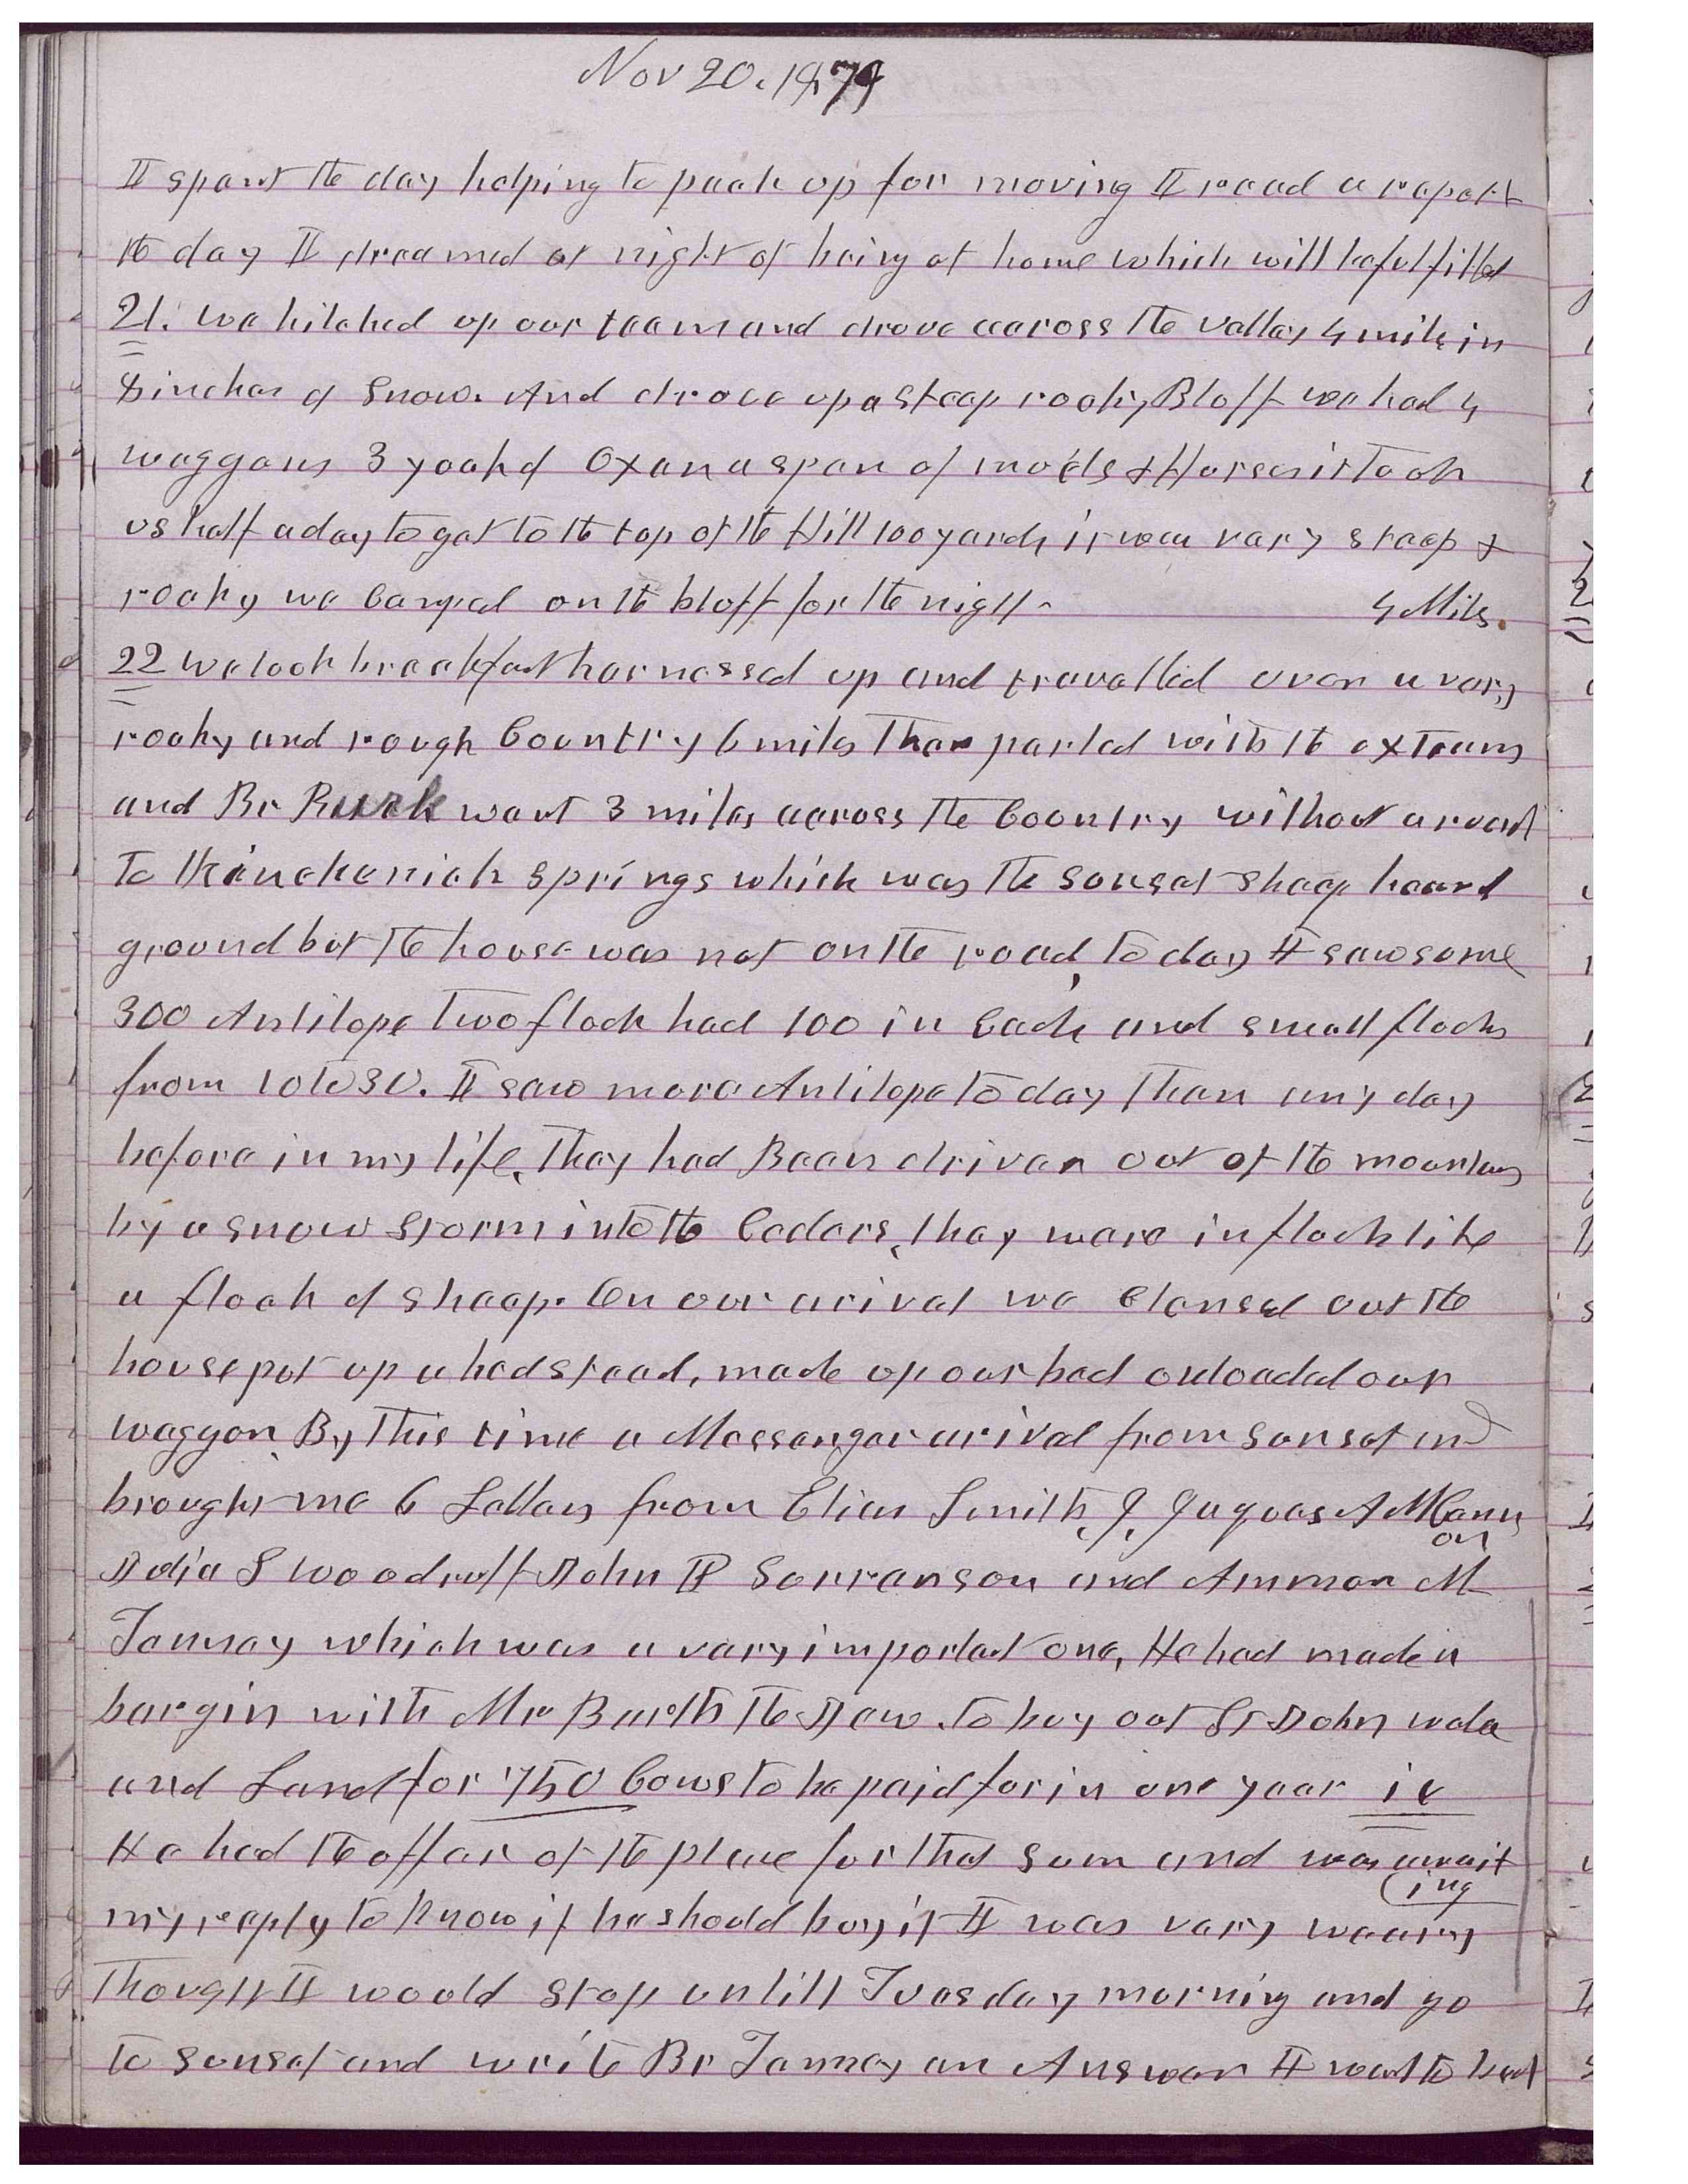 Nov 20. 1879
I spent the day helping to pack up for moving I read a report
to day I dreamed at night of being at home which will be fulfilled
21. we hitched up our team and drove accross the valley 4 mils in
8 inches of snow. And drove up a steep rocky Bluff we had 4
waggons 3 yoak of Oxen a span of muels & Horses it took
us half a day to get to the top of the Hill 100 yards it was vary steep &
rocky we Camped on the bluff for the night 4 Mils.
22 we took breakfast harnessed up and travelled over a vary
rocky and rough Country 6 miles Then parted with the ox teams
and Br Burk went 3 miles accross the Country without a road
to springs which was the sunset sheep heard
ground but the house was not on the road, to day I saw some
300 Antilope two flock had 100 in Each and small flocks
from 10 to 30. I saw more Antilope to day than any day
before in my life, They had Been driven out of the mountains
by a snow storm into the Cedars, they ware in flocks like
a flock of sheep. On our arival we Clensed out the
house put up a bedstead, made up our bed unloaded our
waggon By this time a Messenger arived from Sunset and
brought me 6 Letters from Elias Smith, J. Jaques A M Cann
on
Delia S Woodruff John R Sorranson and Ammon M
Tenney which was a vary important one, He had made a
bargin with Mr Barth the Jew. to buy out St John
and Land for 750 Cows to be paid for in one year ie
He had the offer of the place for that sum and was await
ing
my reeply to know if he should buy it I was vary weary
Thought I would stop untill Tuesday morning and go
to sunset and write Br Tenney an Answer I went to bed